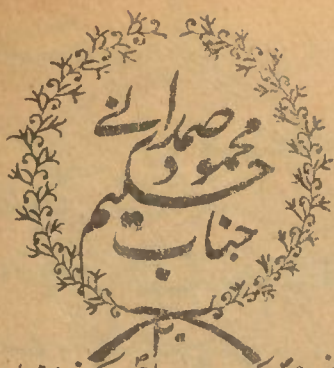 جناب
حکیم
محمود
صمدانے